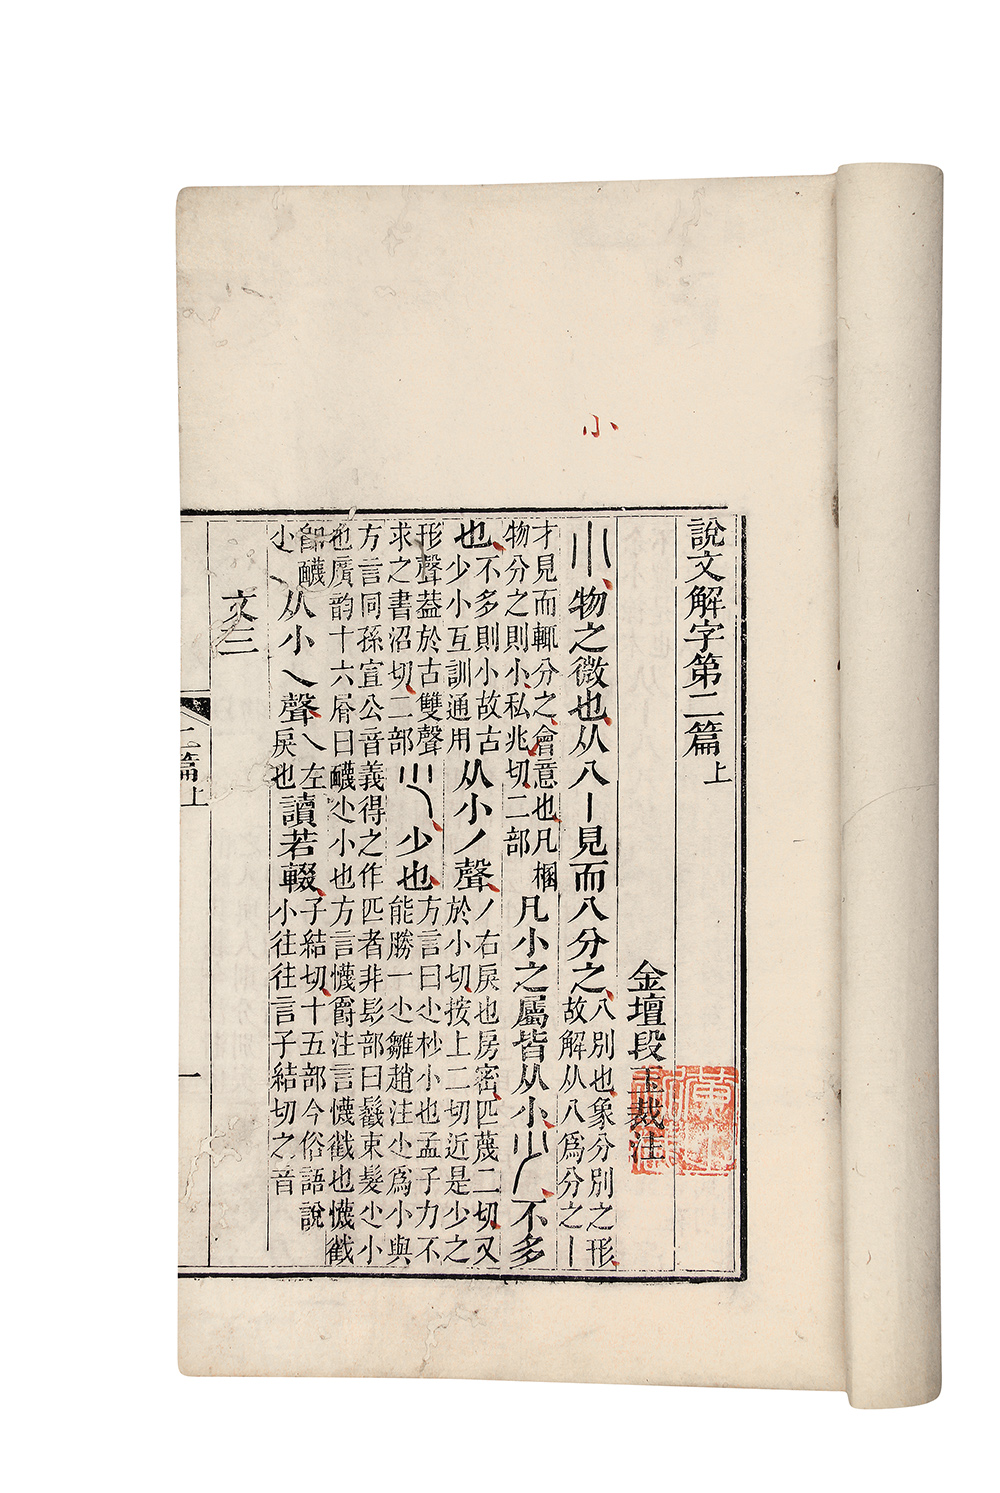 小
說文解字第二篇上
金壇段玉裁注
小物之微也从八丨見而八分之八別也象分別之形故解从八爲分之丨
才見而輒分之會意也凡槶物分之則小私兆切二部凡小之屬皆从小少不多
也不多則小故古少小互訓通用从小丿聲丿右戾也房密匹蔑二切又於小切按上二切近是少之
形聲葢於古雙聲求之書沼切二部尐少也方言曰尐杪小也孟子力不能勝一尐雛趙注尐爲小與
方言同孫宣公音義得之作匹者非髟部曰䰖束髮尐小也廣韵十六屑曰䩏尐小也方言懱爵注言懱截也懱截
卽䩏尐从小乀聲乀左戾也讀若輟子結切十五部今俗語說小往往言子結切之音
文三
二篇上
一